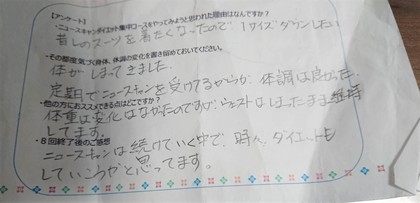 【アンケート】
・ニュースキャンダイエット集中コースをやってみようと思われた理由はなんですか？
昔しのスーツを着たくなったので、1サイズダウンしたい
・その都度気づく身体、体調の変化を書き留めておいてください。
体がしまってきました。
定期でニュースキャンを受けてるからか、体調は良かった。
・他の方におススメできる点はどこですか？
体重は変化はなかったのですが、ウエストはしまったまま維持
してます。
・8回終了後のご感想
ニュースキャンは続けていく中で、時々、ダイエットも
していこうかと思ってます。